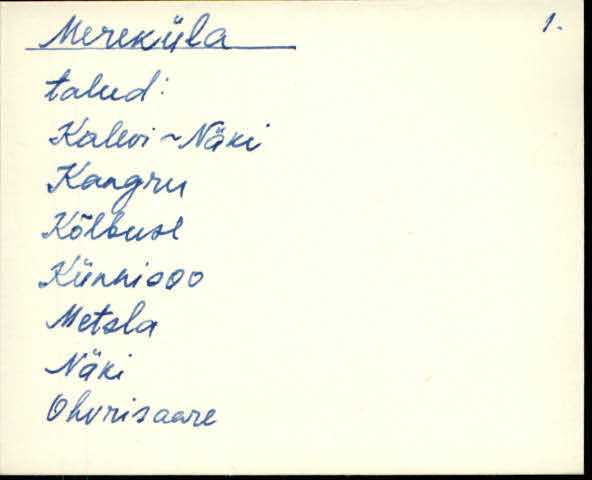 Mereküla 1.
talud:
Kalevi ~ Näki
Kangru
Kõlbuse
Künnisoo
Metsla
Näki
Ohvrisaare